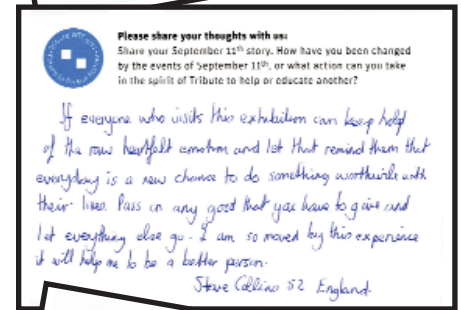 Please share your thoughts with us:
Share your September 11th story. How have you been changed
by the events of September 11th, or what action can you take
in the spirit of Tribute to help or educate another?
If everyone who visits this exhibition can keep hold
of the raw heartfelt emotion and let that remind them that
everyday is a new chance to do something worthwhile with
their lives. Pass on any good that you have to give and
let everything else go. I am so moved by this experience
it will help me to be a better person.
Steve Collins 52 England.